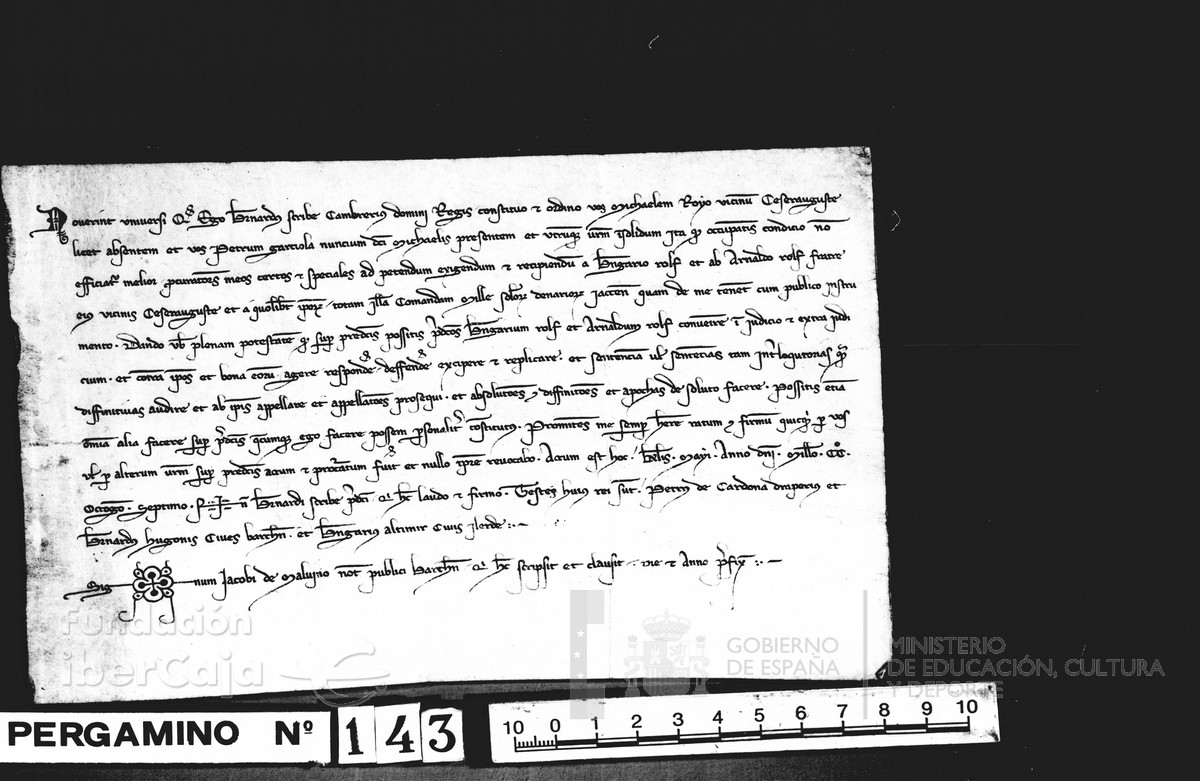 Noverint universi Qd Ego Bernardus scribe Cambrerius domini Regis constituo et ordino vos Michaelem Royo vicinum Cesarauguste
licet absentem et vos Petrum garciola nuncium dci Michaelis presentem et utrumque vrm insolidum Ita qd occupantis condicio non
efficiatr melior procuratores meos certos et speciales ad petendum exigendum et recipiendum a Bngario rolf et ab Arnaldo rolf fratre
eius vicinis Cesarauguste et a quolibet ipsorum totam illam Comandam Mille solidorum denariorum Jaccen quam de me tenent cum publico instru
mento. Dando vobis plenam potestatem qd super predictis possitis predictos Bngarium rolf et Arnaldum rolf convenire in iudicio et extra iudi
cium. et contra ipsos et bona eorum agere respondere deffendere excipere et replicare. et sentenciam vel sentencias tam interloqutorias quam
diffinitivas audire et ab ipsis appellare et appellaciones prosequi. et absoluciones et diffiniciones et apochas de soluto facere. Possitis etiam
omnia alia facere super predictis quecumque ego facere possem personaliter constitutus. Promittens me semper habere ratum et firmum quicquid per vos
vel per alterum vrm super predictis actum et procuratum fuerit et nullo tempore revocabo. Actum est hoc. Madii. Anno dni. Millo. CC.
Octogo. Septimo. Bernardi scribe predicti qui hec laudo et firmo. Testes huius rei sunt. Petrus de Cardona draperius et
Bernardus hugonis Cives barchn. et Bngarius altimir Civis Ilerde
Sig num Jacobi de Not publici Barchn qui hec scripsit et clausit die et Anno prefix
Fundación
iberCaja
GOBIERNO
DE ESPAÑA
MINISTERIO
DE EDUCACIÓN, CULTURA
Y DEPORTE
PERGAMINO Nº 143
10 0 1 2 3 4 5 6 7 8 9 10